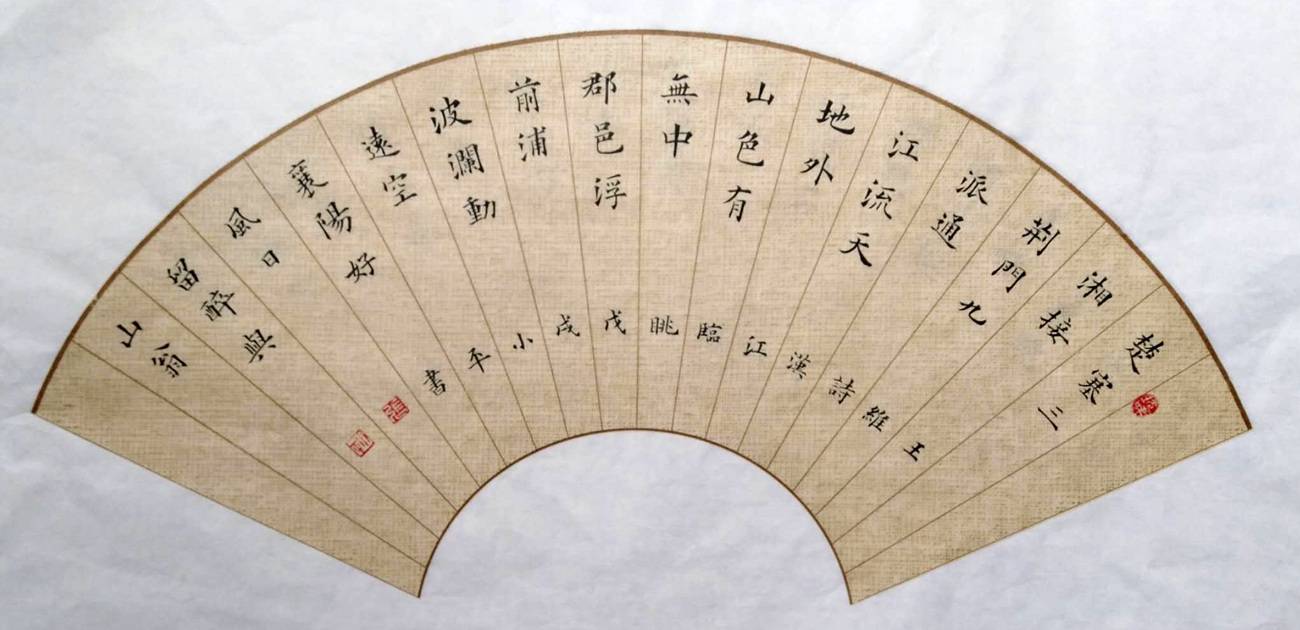 楚塞三
湘接
荆門九
派通
江流天
地外
山色有
無中
郡邑浮
前浦
波瀾動
遠空
襄陽好
風日
留醉與
山翁
王維詩漢江臨眺戊戌小平書